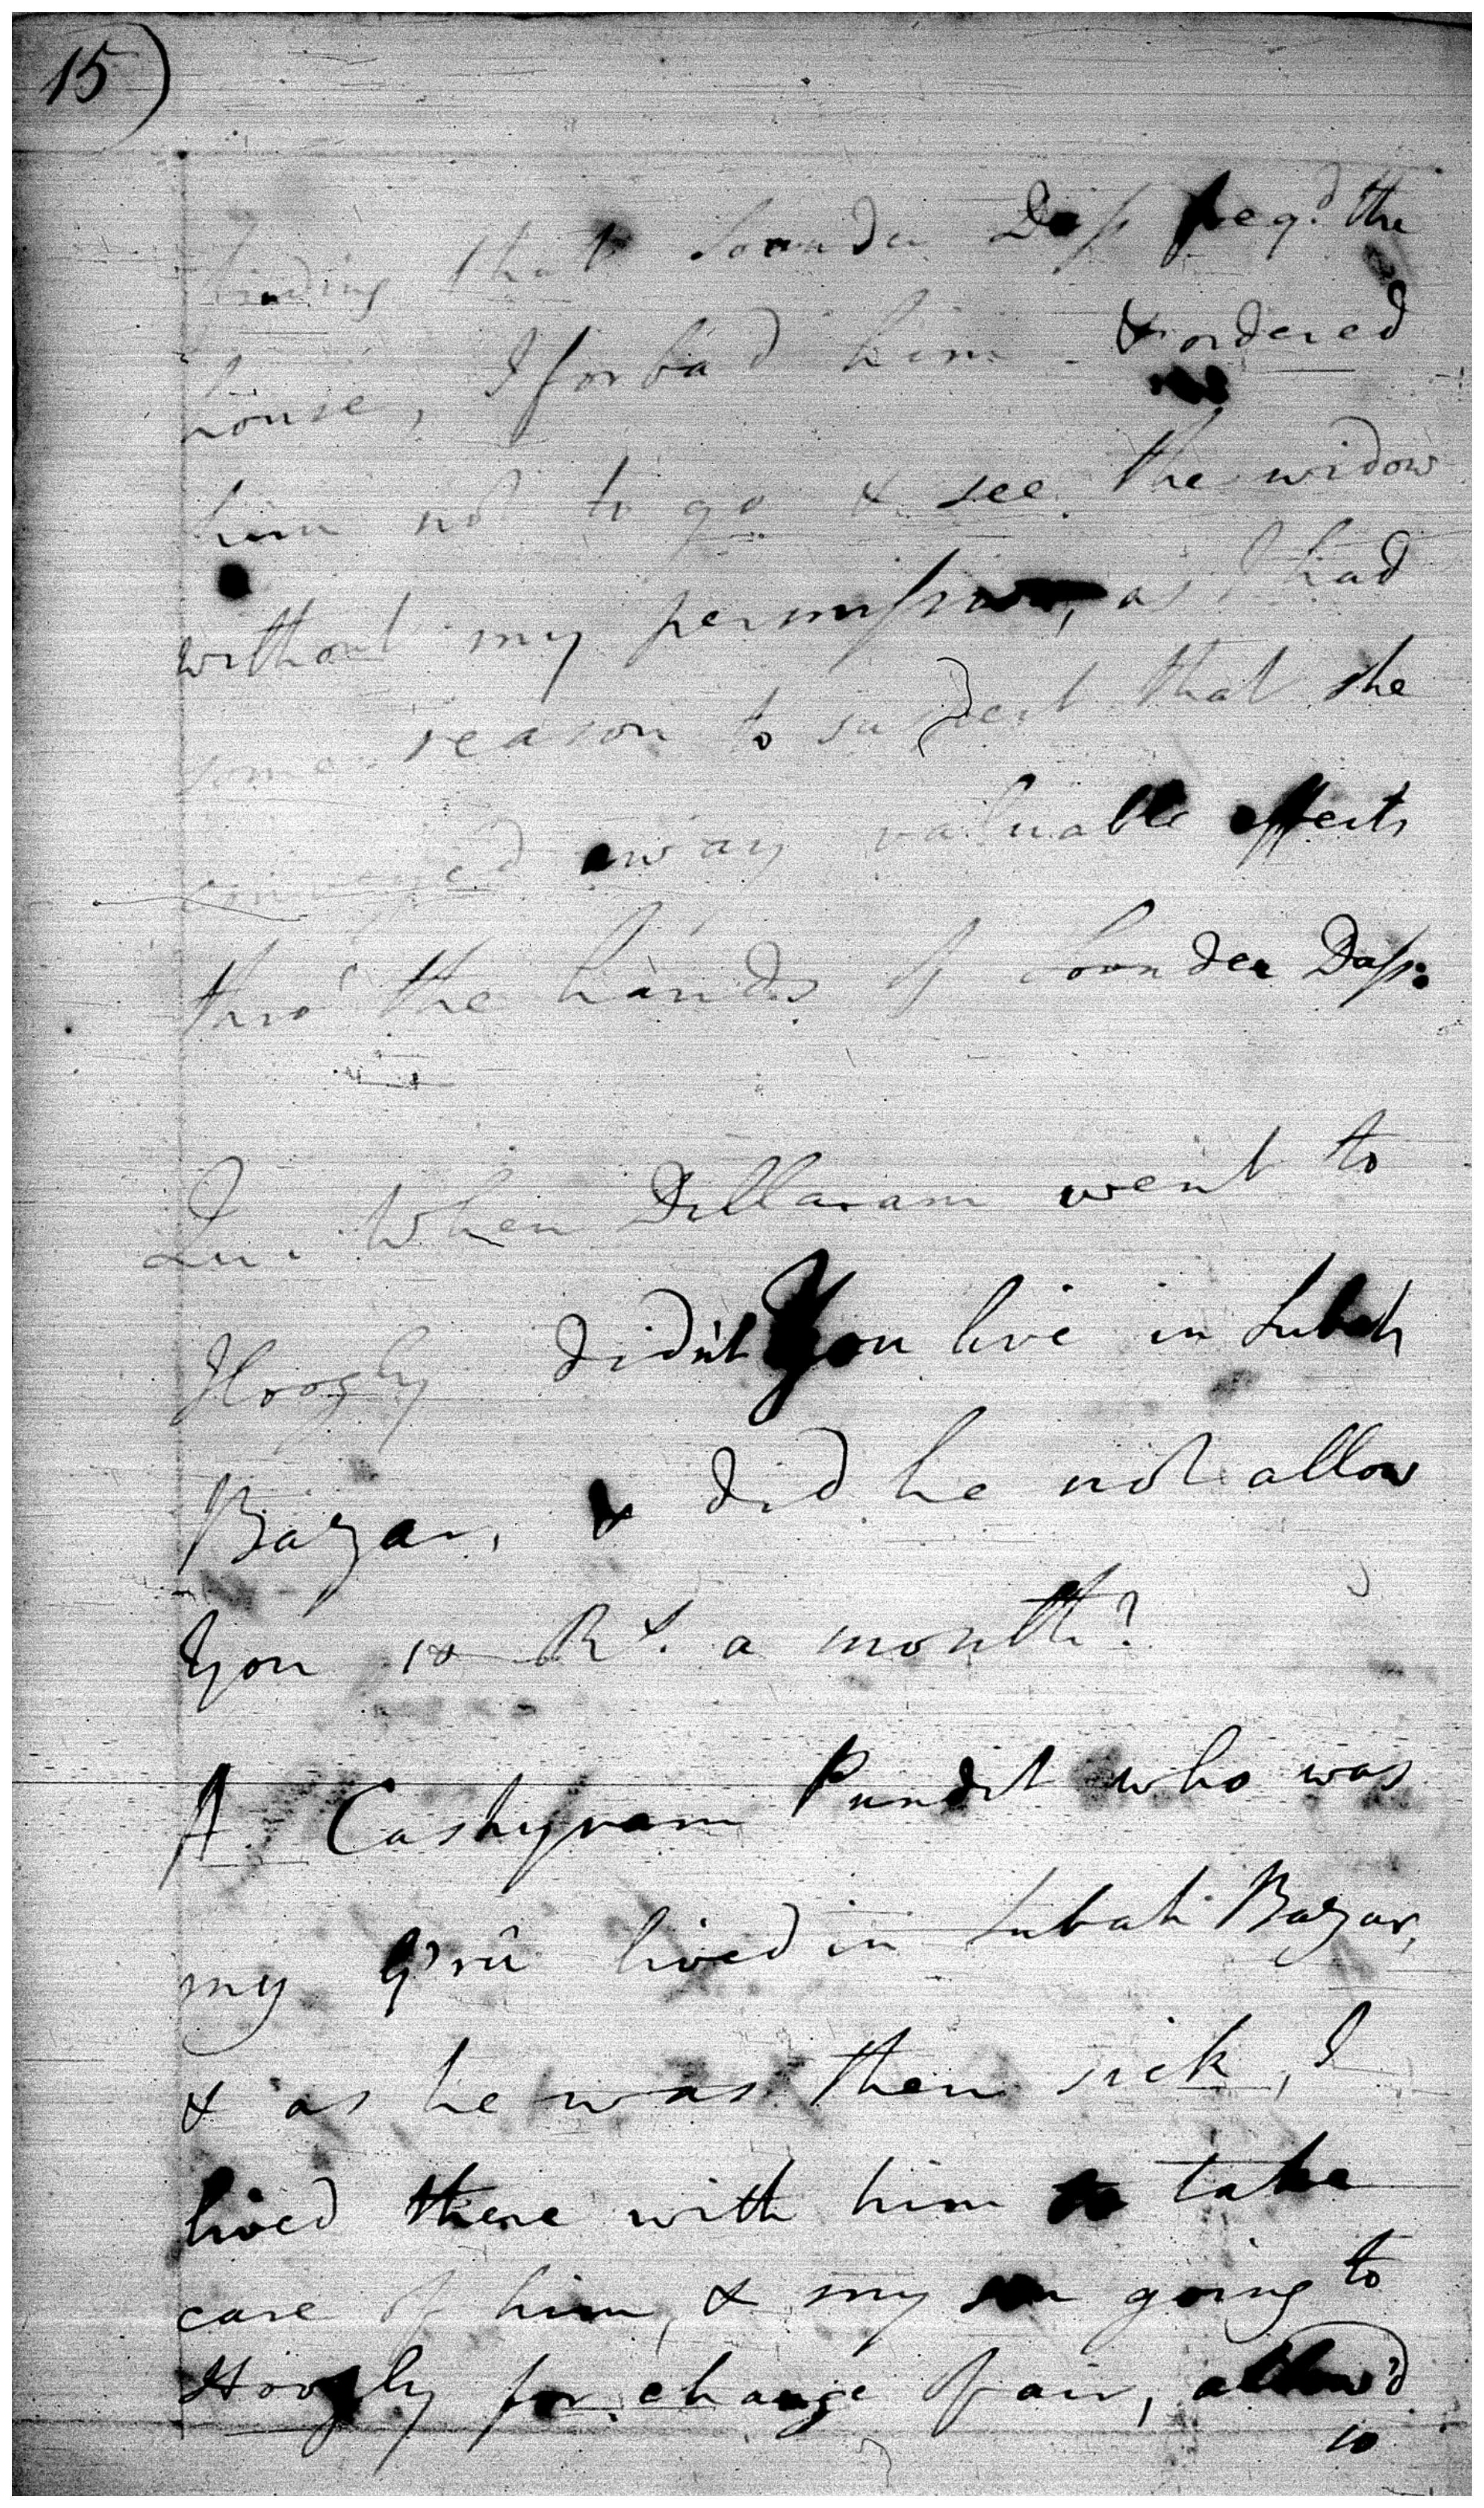 15)
finding that Soonder Dass freq.d the
house, I forbad him & ordered
him not to go & see the widow
without my permission, as I had
some reason to suspect that she
conveyed away valuable effects
thro' the hands of Soonder Dass.
Qu. When Dillaram went to
Hoogly didn't you live in Subah
Bazar, & did he not allow
you 10 Rs. a month?
A Cashyram Pundit who was
my G'rû lived in Subah Bazar,
& as he was then sick, I
lived there with him to take
care of him, & my son going to
Hoogly for change of air, allow'd
10